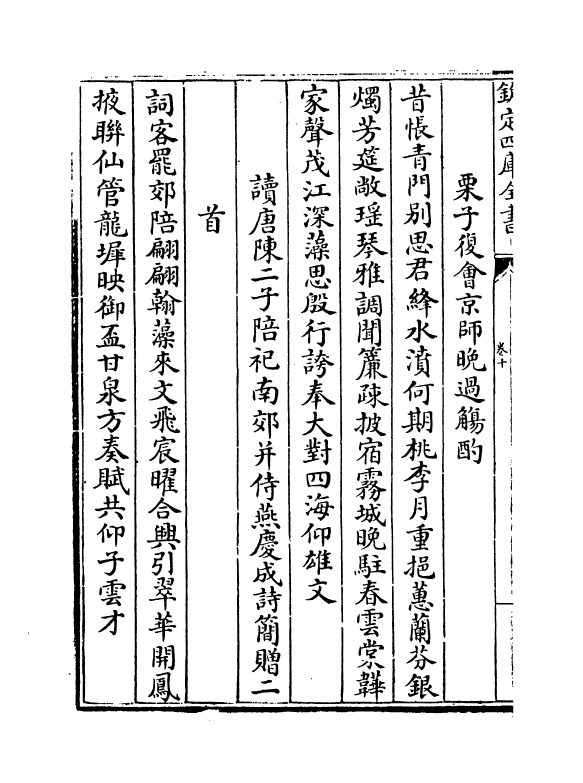 欽定四庫全書
卷十
栗子復會京師晚過觴酌
昔悵青門别思君絳水濆何期桃李月重挹蕙蘭芬銀
燭芳筵敞瑶琴雅調聞簾疎披宿霧城晚駐春雲棠韡
家聲茂江深藻思殷行誇奉大對四海仰雄文
讀唐陳二子陪祀南郊并侍燕慶成詩簡贈二
首
詞客罷郊陪翩翩翰藻來文飛宸曜合興引翠華開鳳
掖聯仙管龍墀映御盃甘泉方奏賦共仰子雲才